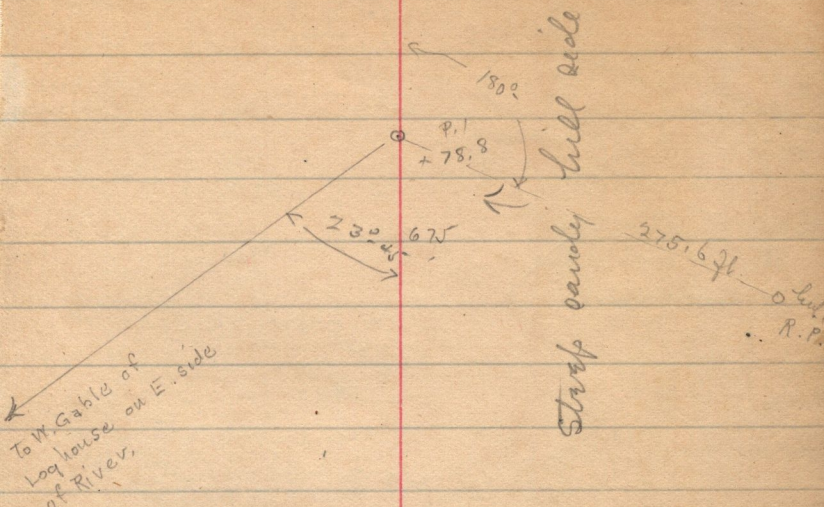 180°
P.I
+ 78.8
23° 45'
675
275.6 ft
R.P.
Steep sandy hill side
To W. Gable of
Log house on E. side
of River.